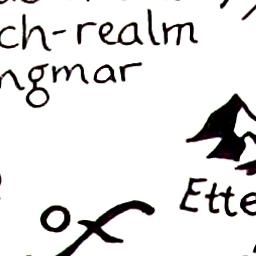 ch-realm
ngmar
Ette